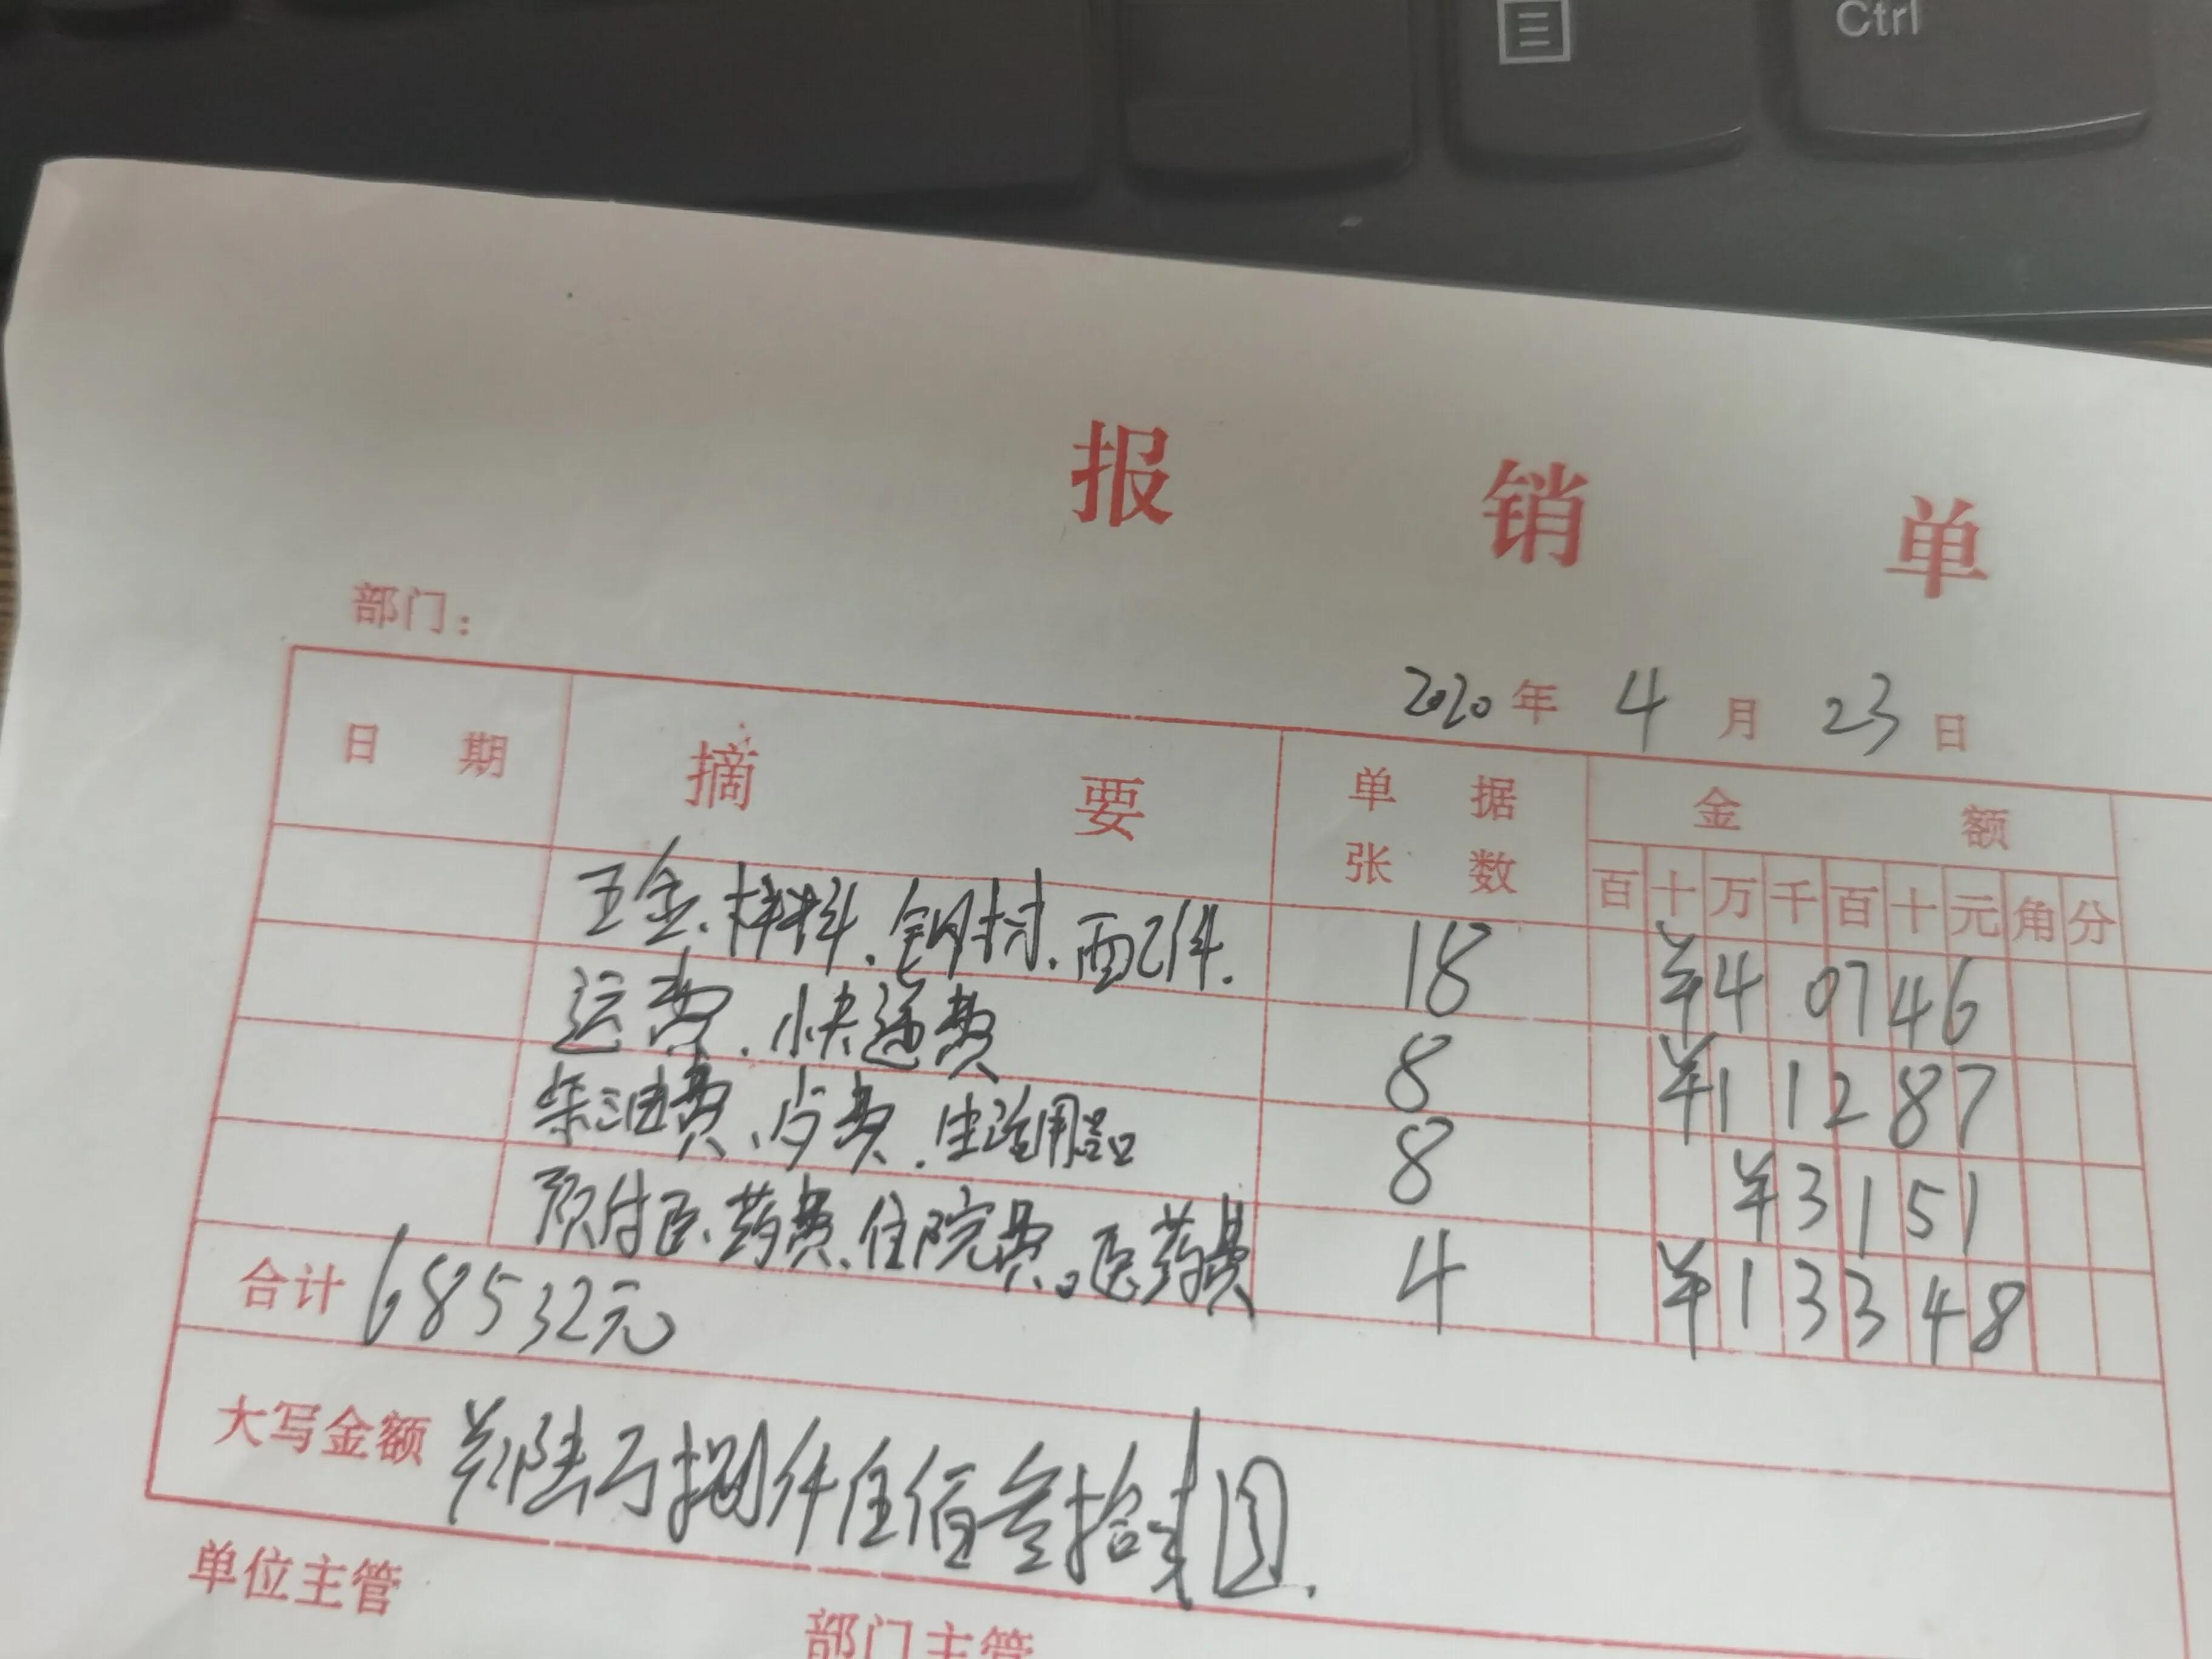 Ctrl
报销单
部门：
2020年4月23日
日期 摘要 单据张数 金额
百十万千百十元角分
五金、材料、钢材、配件. 18 ¥40746
运费、快递费 8 ¥11287
柴油费、生活用品 8 ¥3151
预付医药费、住院费。医药费 4 ¥13348
合计 68532元
大写金额 陆万捌仟伍佰叁拾贰圆.
单位主管
部门主管